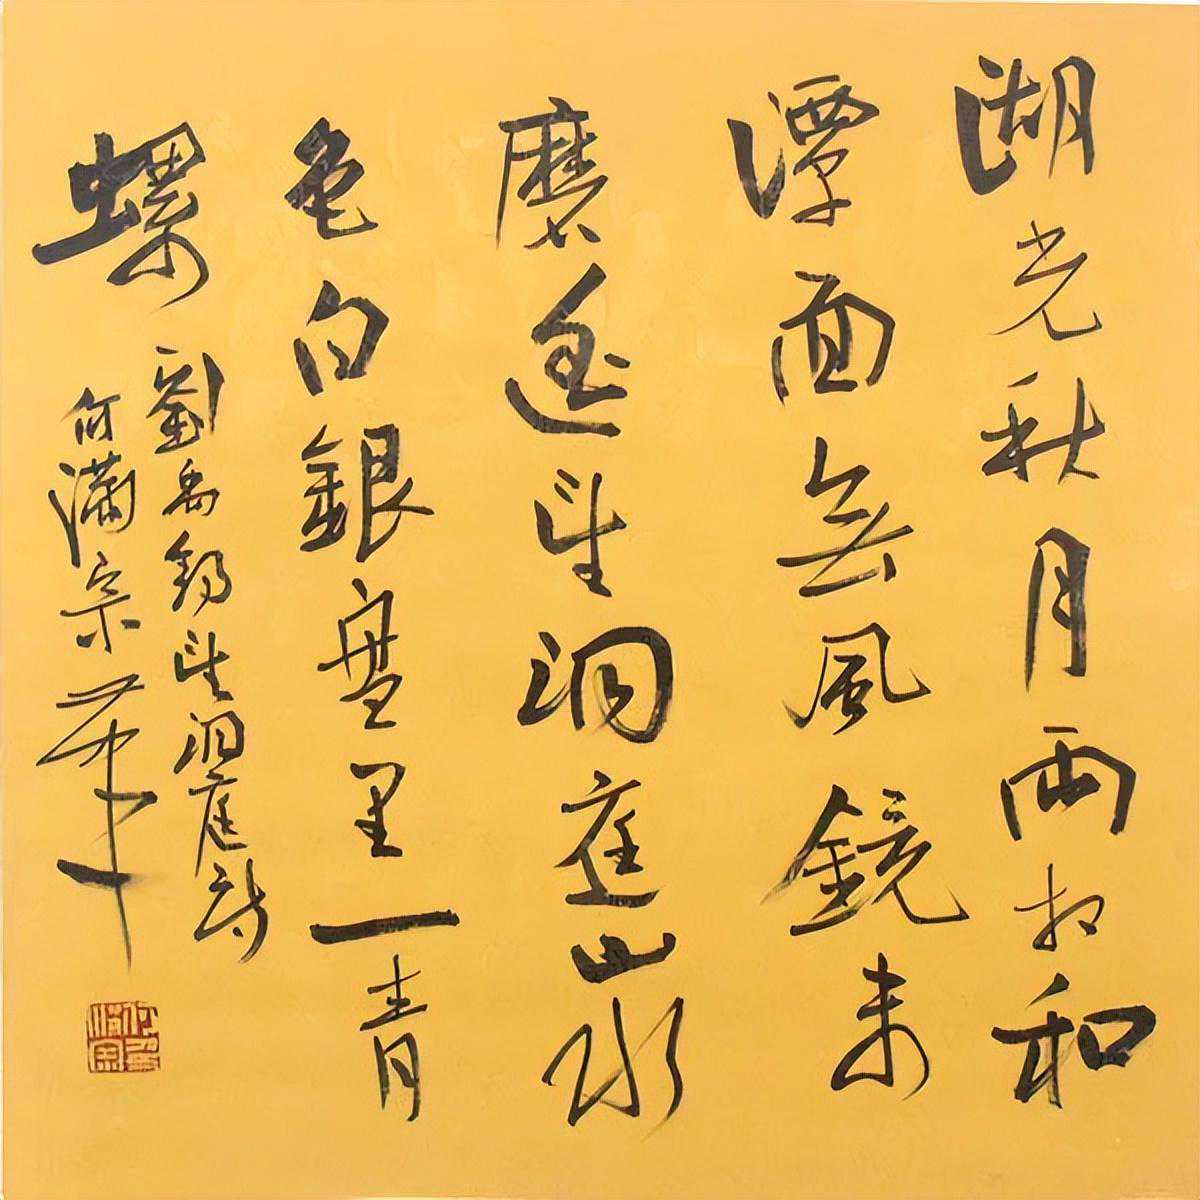 湖光秋月兩相和
潭面無風鏡未
磨遙望洞庭山水
色白銀盤里一青
螺
劉禹錫望洞庭詩
何瀟宗筆